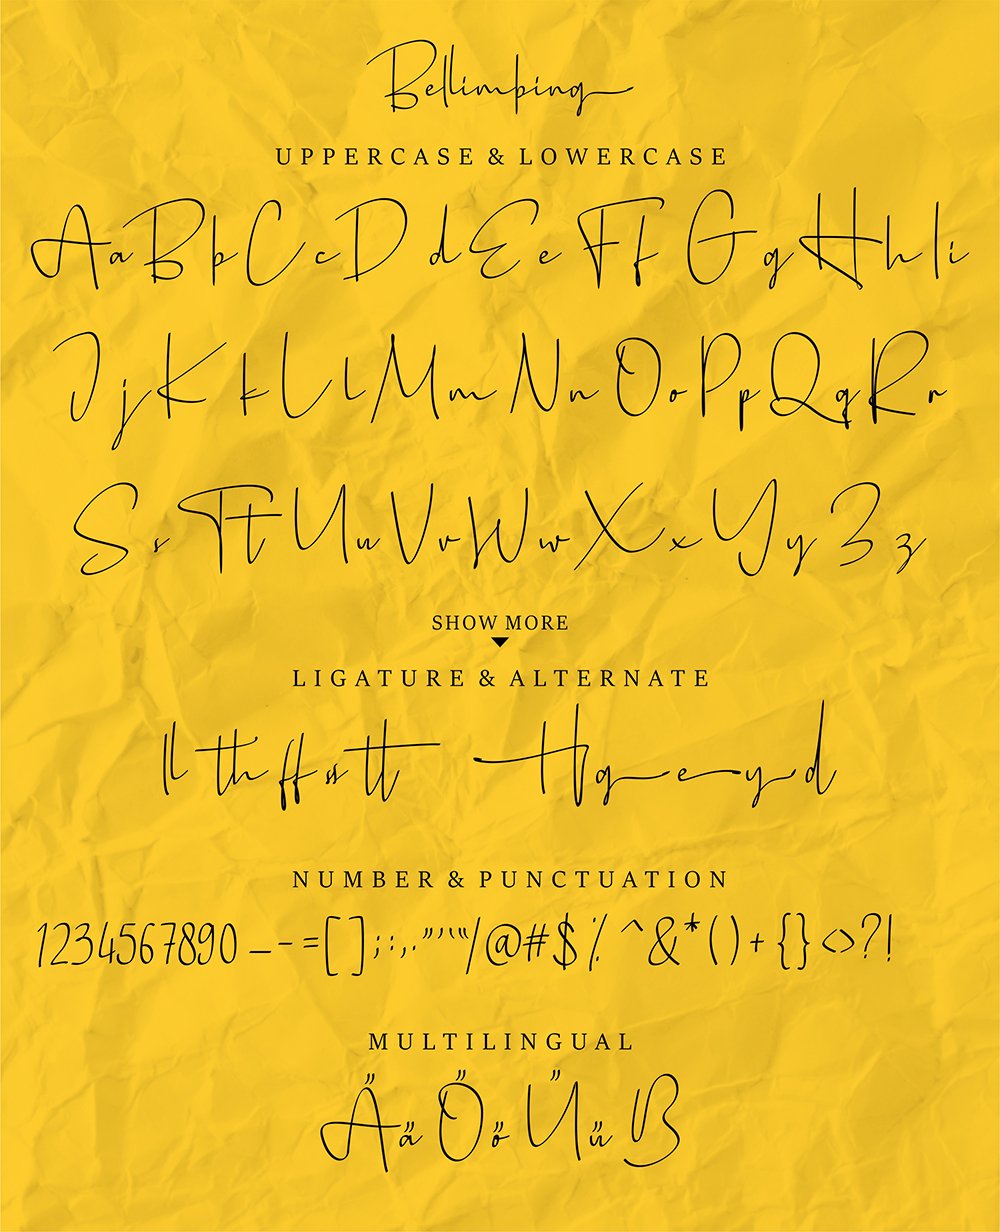 Bellimbing
UPPERCASE & LOWERCASE
Aa Bb Cc Dd Ee Ff Gg Hh Ii
Jj Kk Ll Mm Nn Oo Pp Qq Rr
Ss Tt Uu Vv Ww Xx Yy Zz
SHOW MORE
LIGATURE & ALTERNATE
ll th ff ss tt H g e y d
NUMBER & PUNCTUATION
1234567890 _ - = [ ] ; : , . ” ’ ‘ “ / @ # $ % ^ & * ( ) + { } < > ? !
MULTILINGUAL
Ää Öö Üü ß